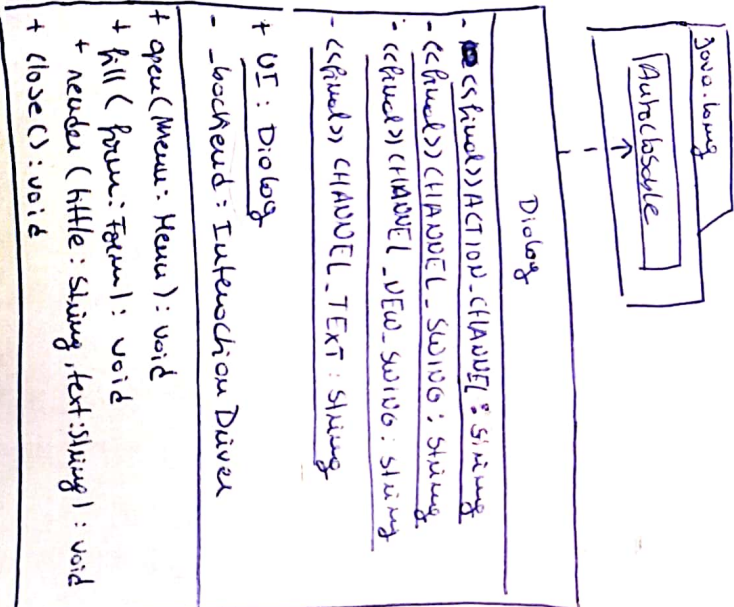 java.lang
Autoclosable
Dialog
- <<final>> ACTION_CHANNEL : String
- <<final>> CHANNEL_SWING : String
- <<final>> CHANNEL_NEW_SWING : String
- <<final>> CHANNEL_TEXT : String
+ UI : Dialog
- _backend : Interaction Driver
+ open(Menu : Menu) : void
+ fill (form : Form) : void
+ render (tittle : String, text : String) : void
+ close() : void